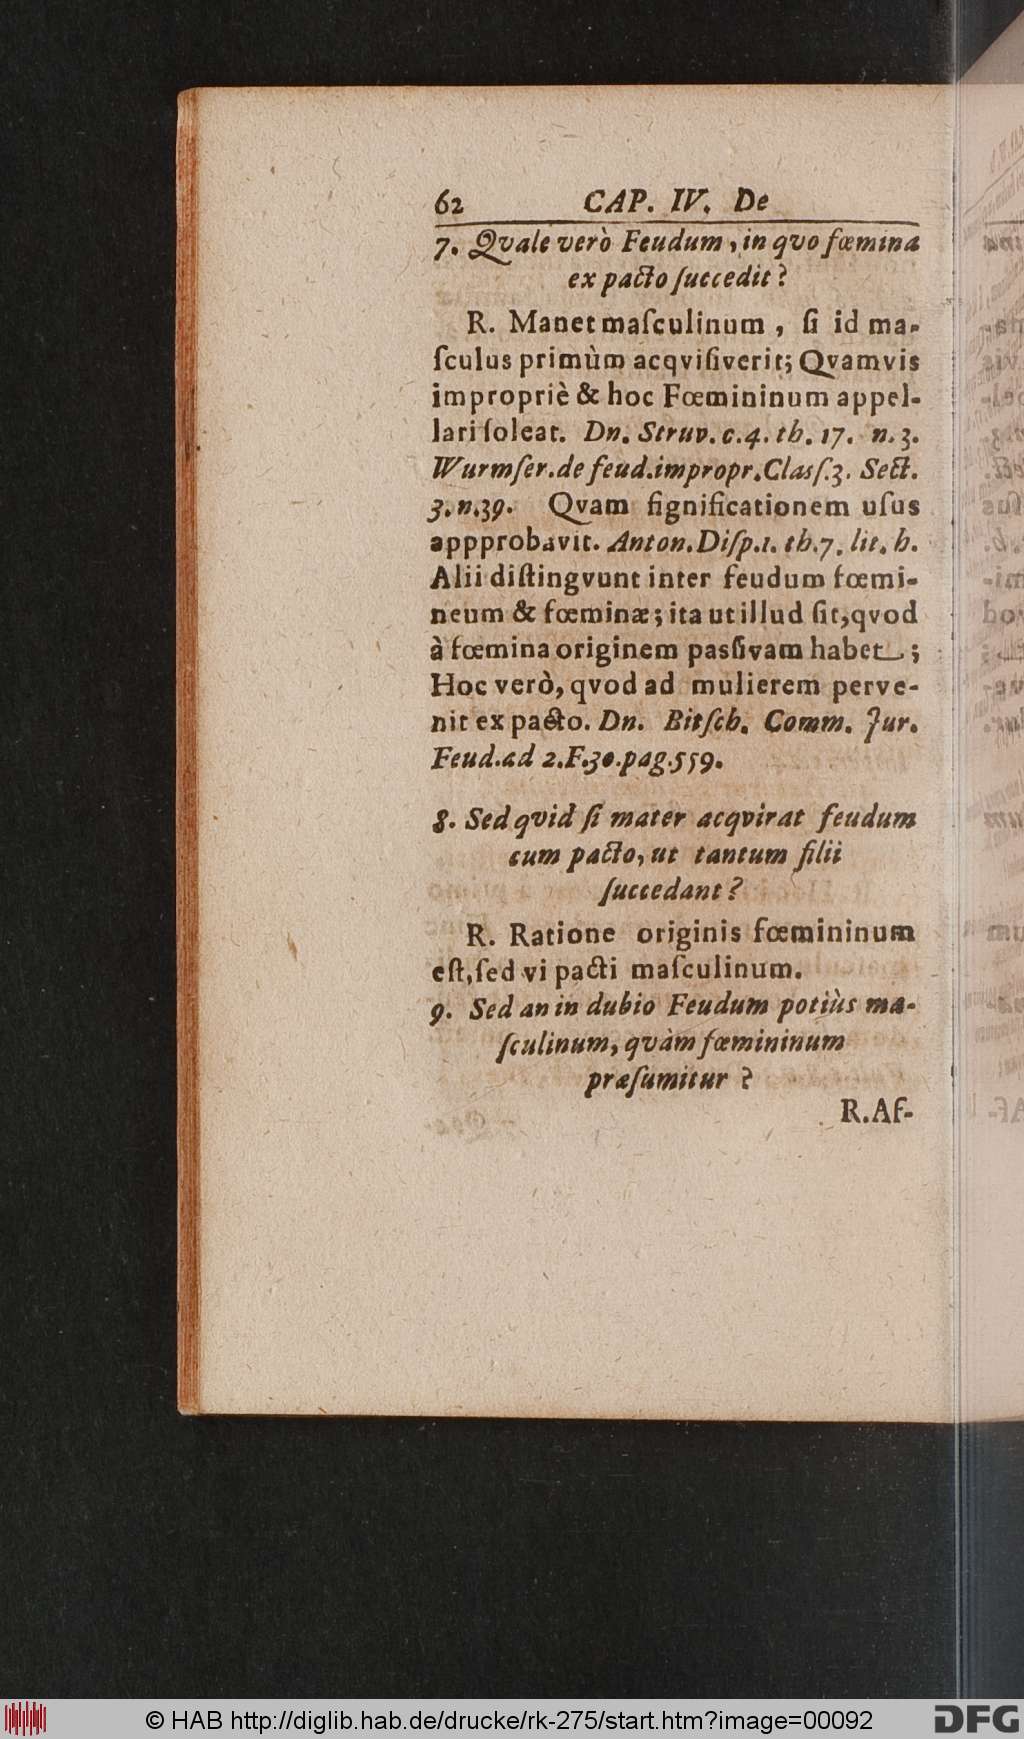 62 CAP. IV. De
7. Qvale verò Feudum, in qvo fœmina
ex pacto ſuccedit?
R. Manet maſculinum, ſi id ma-
ſculus primùm acqviſiverit; Qvamvis
impropriè & hoc Fœmininum appel-
lari ſoleat. Dn. Struv. c. 4. th. 17. n. 3.
Wurmſer. de feud. impropr. Claſſ. 3. Sect.
3. n. 39. Qvam ſignificationem uſus
appprobavit. Anton. Diſp. 1. th. 7. lit. h.
Alii diſtingvunt inter feudum fœmi-
neum & fœminæ; ita ut illud ſit, qvod
à fœmina originem paſſivam habet;
Hoc verò, qvod ad mulierem perve-
nit ex pacto. Dn. Bitſch. Comm. Jur.
Feud. ad 2. F. 30. pag. 559.
8. Sed qvid ſi mater acqvirat feudum
cum pacto, ut tantum filii
ſuccedant?
R. Ratione originis fœmininum
eſt, ſed vi pacti maſculinum.
9. Sed an in dubio Feudum potiùs ma-
ſculinum, qvàm fœmininum
præſumitur?
R. Af-
© HAB http://diglib.hab.de/drucke/rk-275/start.htm?image=00092
DFG